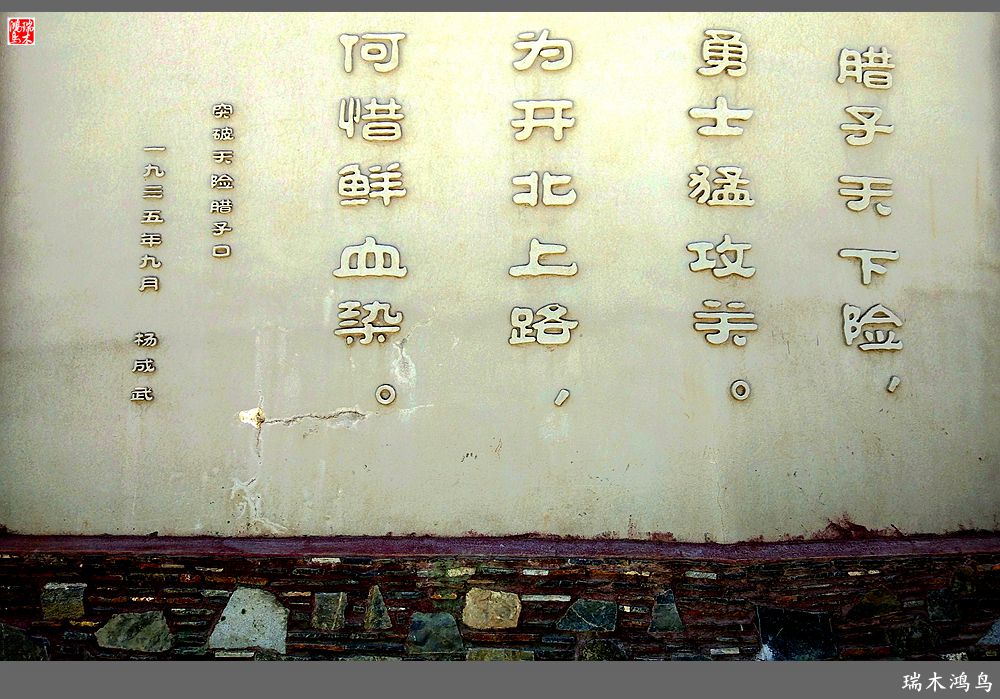 腊子天下险，
勇士猛攻关。
为开北上路，
何惜鲜血染。
突破天险腊子口
一九三五年九月 杨成武
瑞木鸿鸟
瑞木鸿鸟